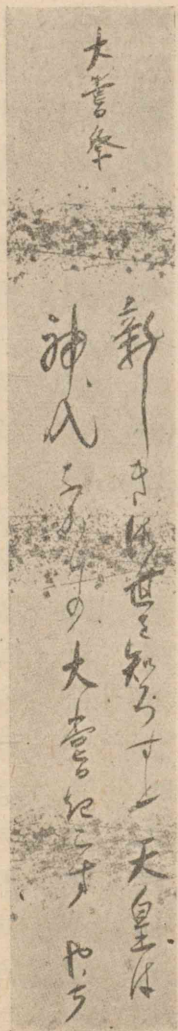 大嘗祭
新しき御世を知ろすと天皇は
神代ながらの大嘗きこす